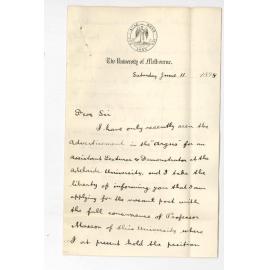 The University of Melbourne.
Saturday June 11. 1898
Dear Sir
I have only recently seen the
advertisement in the "Argus" for an
Assistant Lecturer & Demonstrator at the
Adelaide University, and I take the
liberty of informing you that I am
applying for the vacant post with
the full concurrence of Professor
Masson of this University where
I at present hold the position